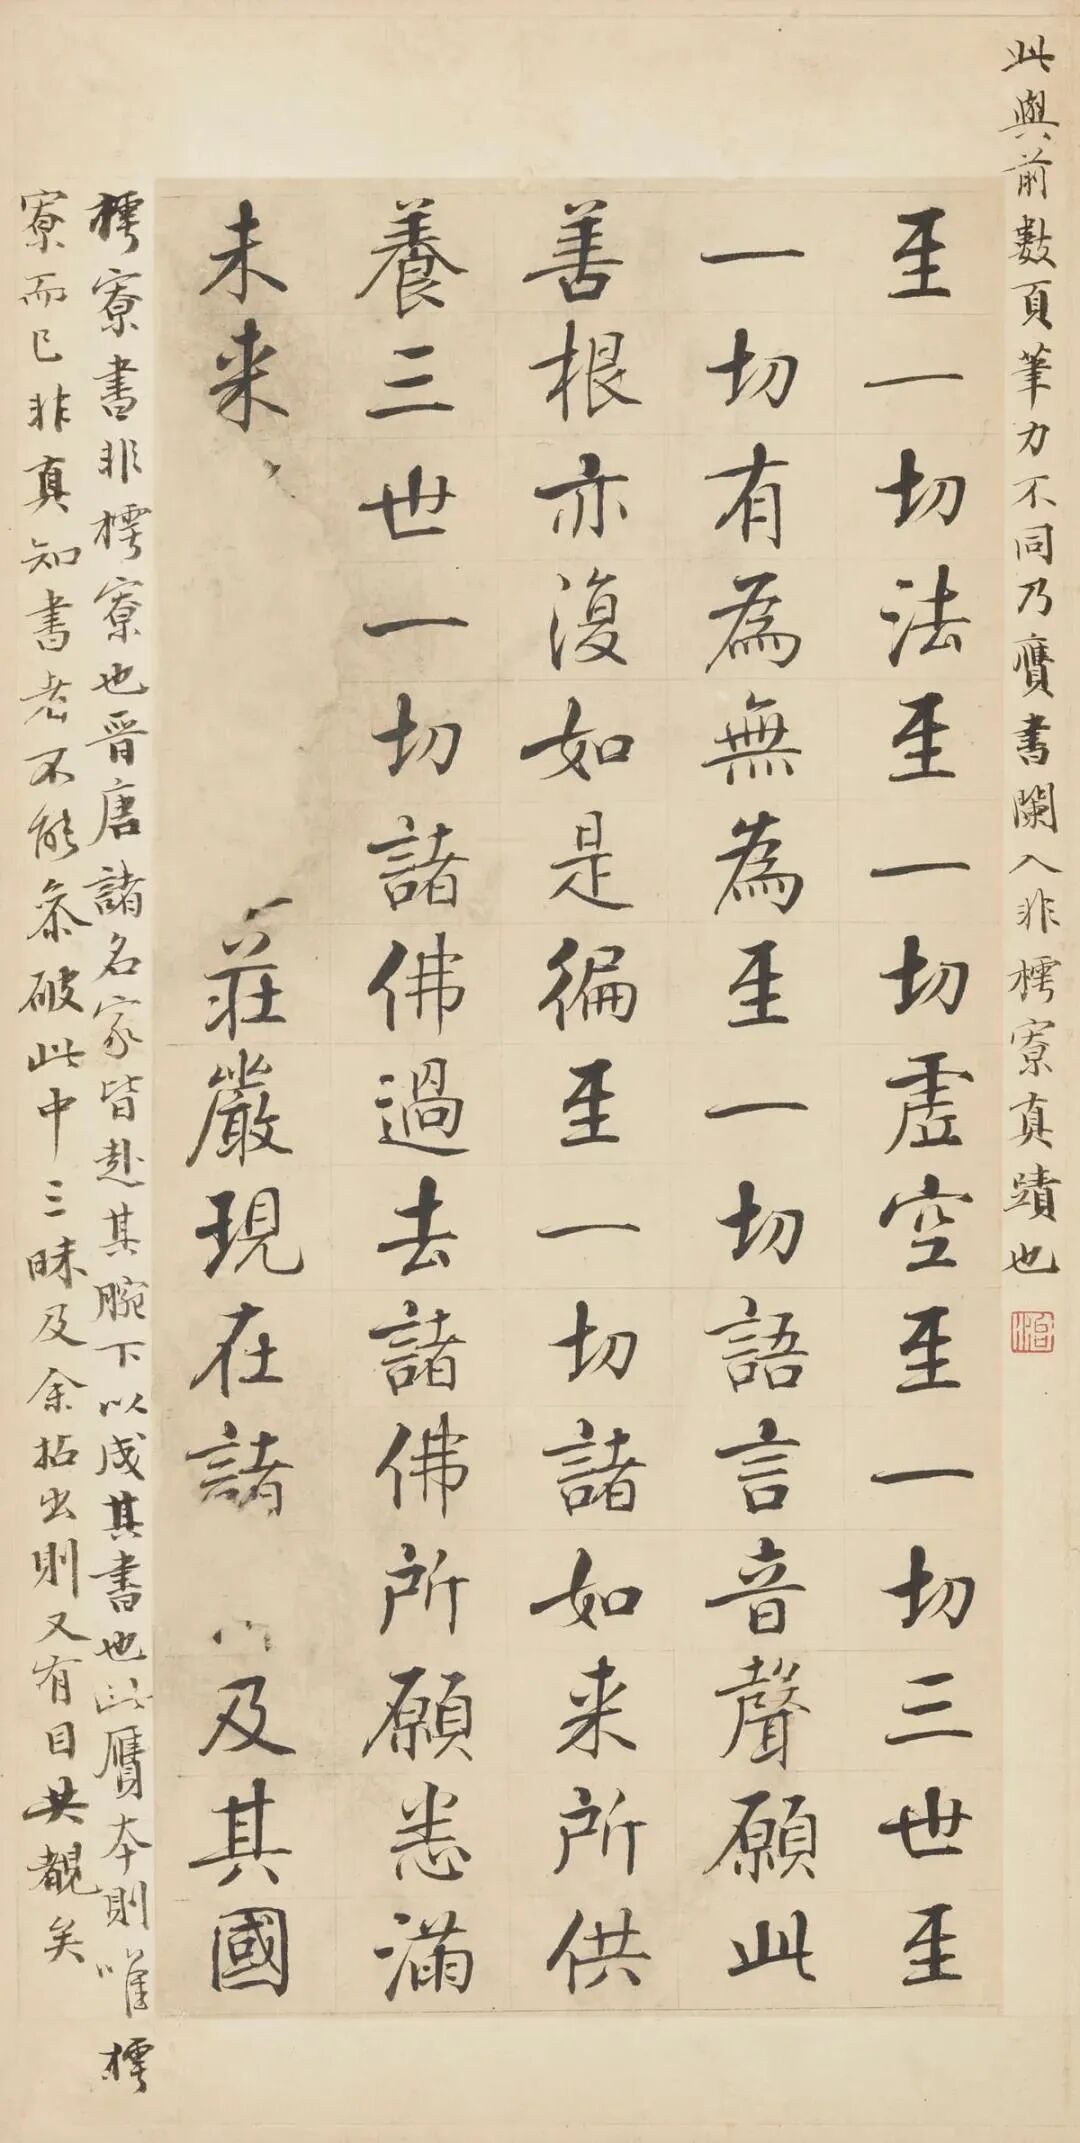 此與前數頁筆力不同乃贗書闌入非樗寮真蹟也
至一切法至一切虛空至一切三世至
一切有為無為至一切語言音聲願此
善根亦復如是徧至一切諸如来所供
養三世一切諸佛過去諸佛所願悉滿
未来
莊嚴現在諸
及其國
樗寮書非樗寮也晋唐諸名家皆赴其腕下以成其書也此贗本則唯樗
寮而已非真知書者不能叅破此中三昧及余拈出則又有目共覩矣